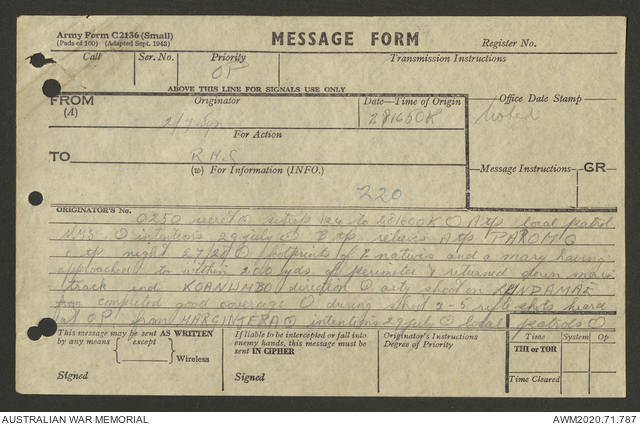 Army Form C2136 (Small)
(Pads of 100) (Adapted Sept. 1943)
MESSAGE FORM
Register No.
Call Ser. No. Priority Transmission Instructions
OP
ABOVE THIS LINE FOR SIGNALS USE ONLY
FROM Originator Date—Time of Origin Office Date Stamp
(A) 2/7 281650K Noted
For Action
TO RHS
(w) For Information (INFO.) Message Instructions GR
220
ORIGINATOR'S No.
0250 secret ⊙ sitrep 124 to 281600K ⊙ A tp local patrol
NMS ⊙ intentions 29 july ⊙ B tp relieves A tp PAROM ⊙
c tp night 27/28 ⊙ footprints of 2 natives and a mary having
approached to within 200 yds of perimeter & returned down main
track and KOANUMBO direction ⊙ arty shoot on KANDAMAE
from completed good coverage ⊙ during shoot 2-5 rifle shots heard
at OP from MARGINTERA ⊙ intentions 29 july ⊙ local patrols ⊙
This message may be sent AS WRITTEN
by any means except Wireless
Signed
If liable to be intercepted or fall into
enemy hands, this message must be
sent IN CIPHER
Signed
Originator's Instructions
Degree of Priority
Time System Op
THI or TOR
Time Cleared
AUSTRALIAN WAR MEMORIAL AWM2020.71.787